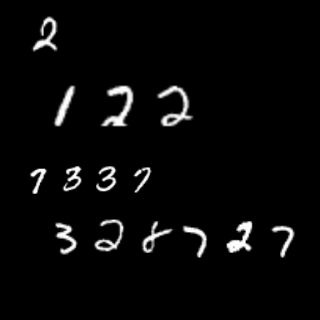 2
122
7337
328727